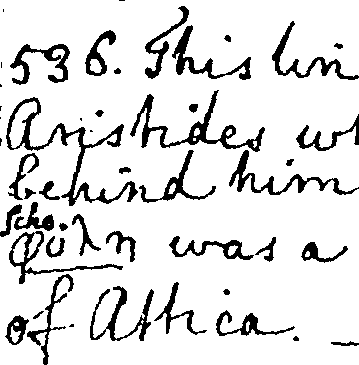 536. This lin
Aristides wh
behind him
Scho.
Φυλη was a
of Attica. –